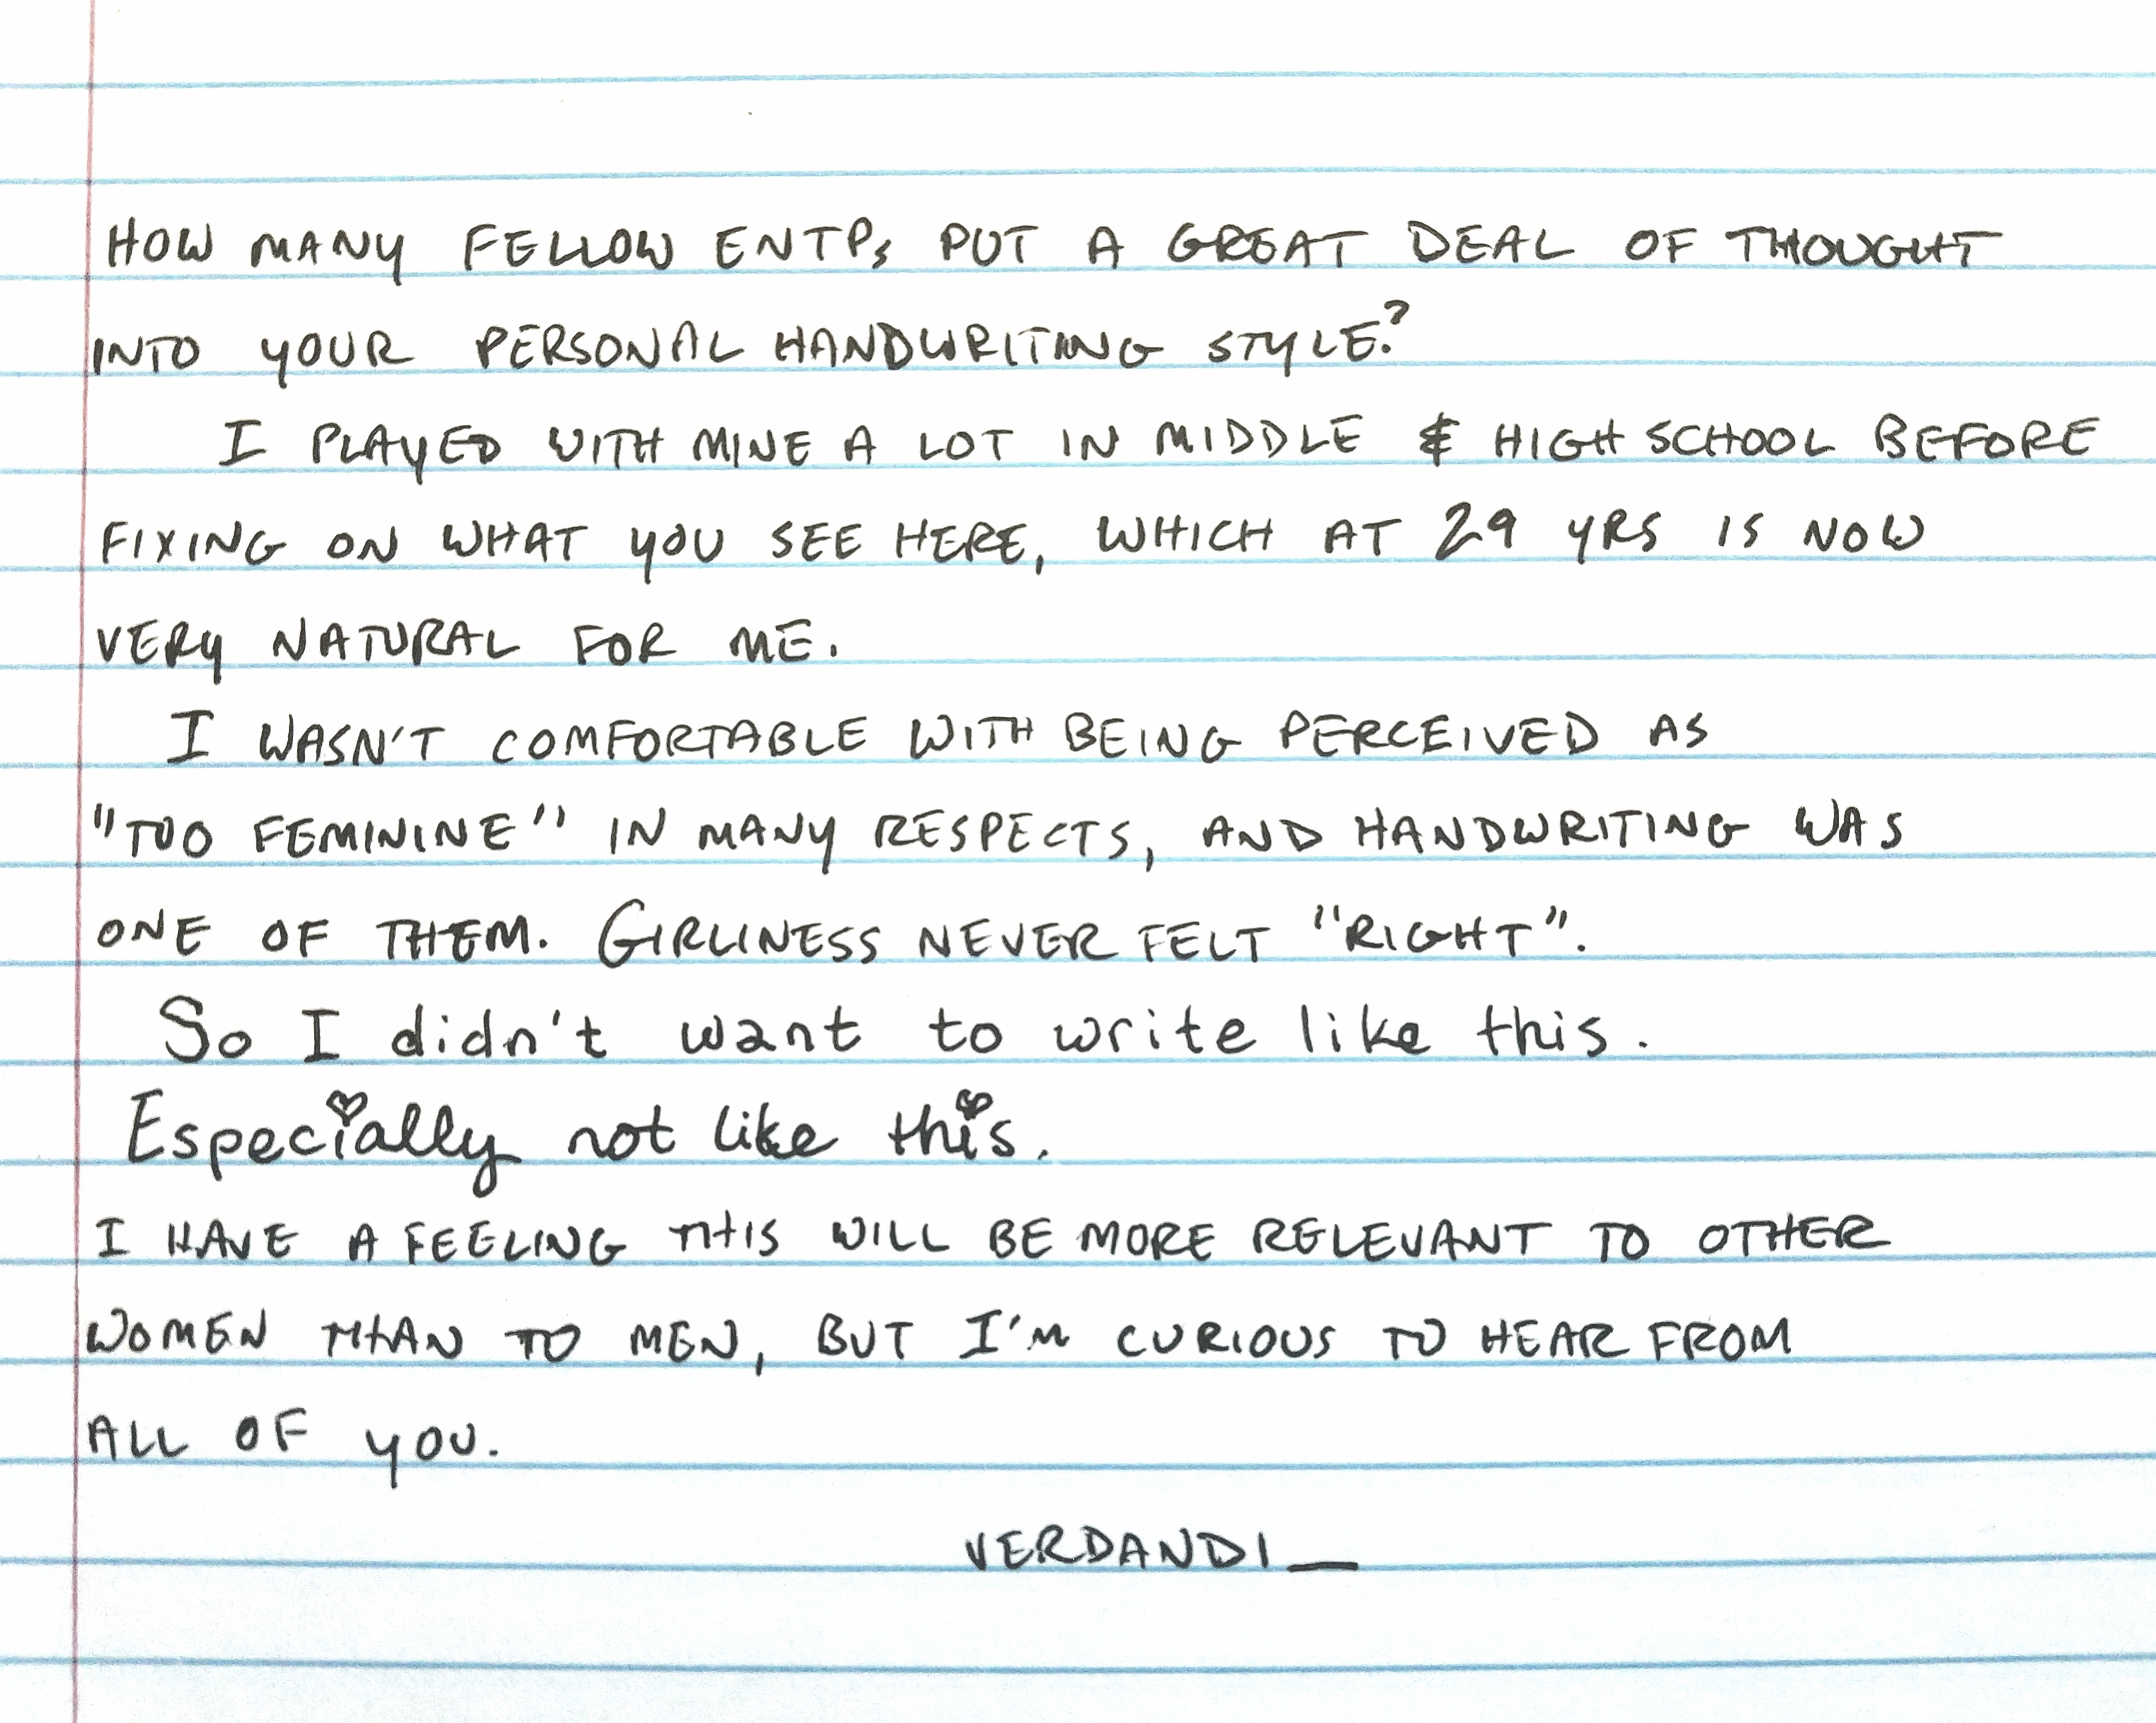 HOW MANY FELLOW ENTPs PUT A GREAT DEAL OF THOUGHT
INTO YOUR PERSONAL HANDWRITING STYLE?
I PLAYED WITH MINE A LOT IN MIDDLE & HIGH SCHOOL BEFORE
FIXING ON WHAT YOU SEE HERE, WHICH AT 29 YRS IS NOW
VERY NATURAL FOR ME.
I WASN'T COMFORTABLE WITH BEING PERCEIVED AS
"TOO FEMININE" IN MANY RESPECTS, AND HANDWRITING WAS
ONE OF THEM. GIRLINESS NEVER FELT "RIGHT".
So I didn't want to write like this.
Especially not like this.
I HAVE A FEELING THIS WILL BE MORE RELEVANT TO OTHER
WOMEN THAN TO MEN, BUT I'M CURIOUS TO HEAR FROM
ALL OF YOU.
VERDANDI_